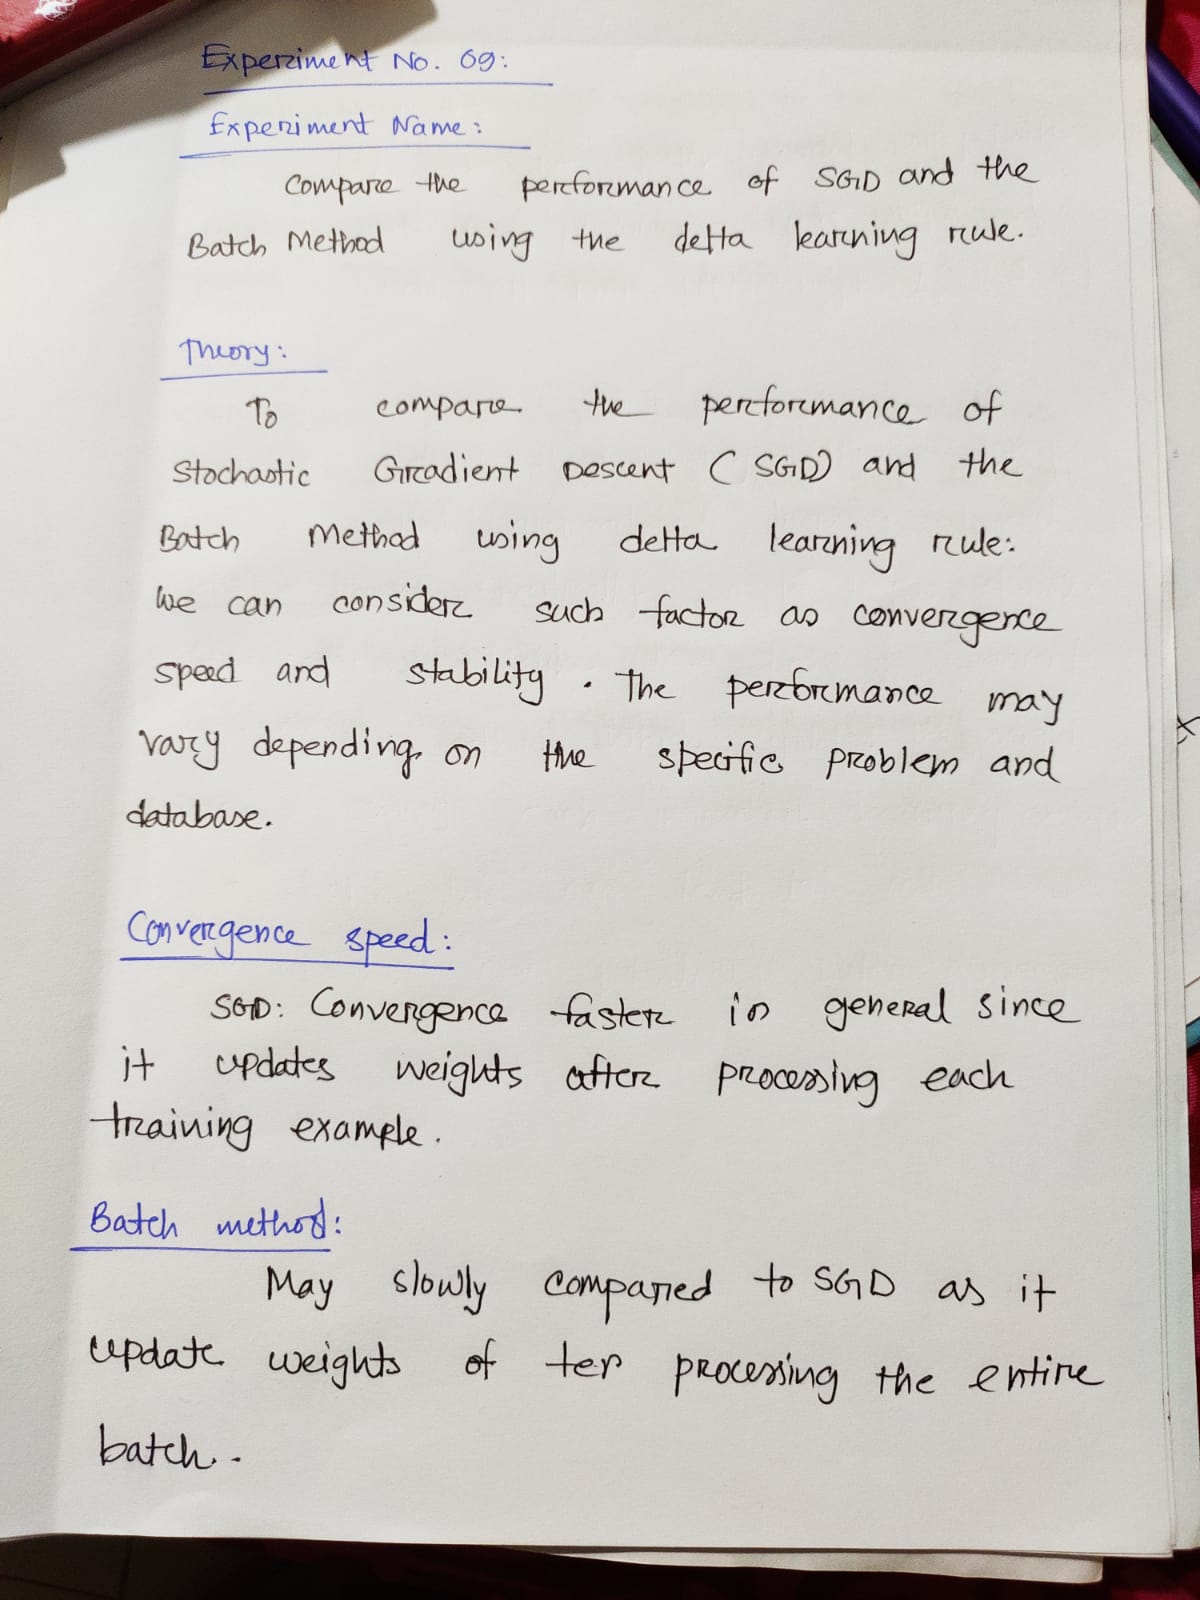 Experiment No. 09:
Experiment Name:
Compare the performance of SGD and the
Batch Method using the delta learning rule.
Theory:
To compare the performance of
Stochastic Gradient Descent (SGD) and the
Batch Method using delta learning rule:
We can consider such factor as convergence
speed and stability. The performance may
vary depending on the specific problem and
database.
Convergence speed:
SGD: Convergence faster in general since
it updates weights after processing each
training example.
Batch method:
May slowly compared to SGD as it
update weights of ter processing the entire
batch..